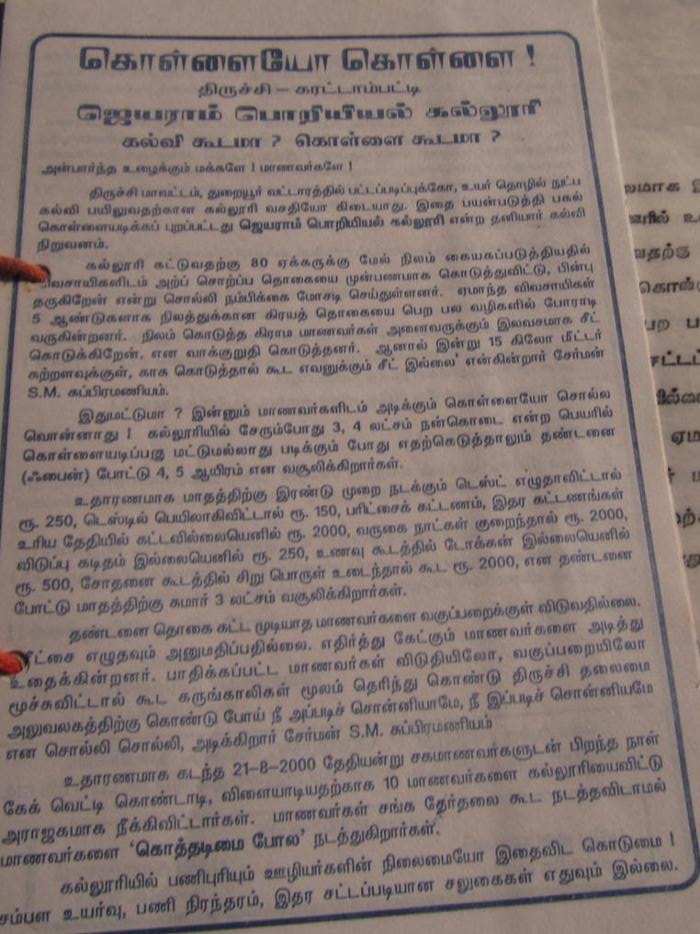 கொள்ளையோ கொள்ளை !
திருச்சி – கரட்டாம்பட்டி
ஜெயராம் பொறியியல் கல்லூரி
கல்வி கூடமா ? கொள்ளை கூடமா ?
அன்பார்ந்த உழைக்கும் மக்களே ! மாணவர்களே !
திருச்சி மாவட்டம், துறையூர் வட்டாரத்தில் பட்டப்படிப்புக்கோ, உயர் தொழில் நுட்ப
கல்வி பயிலுவதற்கான கல்லூரி வசதியோ கிடையாது. இதை பயன்படுத்தி பகல்
கொள்ளையடிக்கப் புறப்பட்டது ஜெயராம் பொறியியல் கல்லூரி என்ற தனியார் கல்வி
நிறுவனம்.
கல்லூரி கட்டுவதற்கு 80 ஏக்கருக்கு மேல் நிலம் கையகப்படுத்தியதில்
விவசாயிகளிடம் அற்ப சொற்ப்ப தொகையை முன்பணமாக கொடுத்துவிட்டு, பின்பு
தருகிறேன் என்று சொல்லி நம்பிக்கை மோசடி செய்துள்ளனர். ஏமாந்த விவசாயிகள்
5 ஆண்டுகளாக நிலத்துக்கான கிரயத் தொகையை பெற பல வழிகளில் போராடி
வருகின்றனர். நிலம் கொடுத்த கிராம மாணவர்கள் அனைவருக்கும் இலவசமாக சீட்
கொடுக்கிறேன். என வாக்குறுதி கொடுத்தனர். ஆனால் இன்று 15 கிலோ மீட்டர்
சுற்றளவுக்குள், காசு கொடுத்தால் கூட எவனுக்கும் சீட் இல்லை' என்கின்றார் சேர்மன்
S.M. சுப்பிரமணியம்.
இதுமட்டுமா ? இன்னும் மாணவர்களிடம் அடிக்கும் கொள்ளையோ சொல்ல
வொன்னாது ! கல்லூரியில் சேரும்போது 3, 4 லட்சம் நன்கொடை என்ற பெயரில்
கொள்ளையடிப்பது மட்டுமல்லாது படிக்கும் போது எதற்கெடுத்தாலும் தண்டனை
(ஃபைன்) போட்டு 4, 5 ஆயிரம் என வசூலிக்கிறார்கள்.
உதாரணமாக மாதத்திற்கு இரண்டு முறை நடக்கும் டெஸ்ட் எழுதாவிட்டால்
ரூ. 250, டெஸ்டில் பெயிலாகிவிட்டால் ரூ. 150, பரிட்சைக் கட்டணம், இதர கட்டணங்கள்
உரிய தேதியில் கட்டவில்லையெனில் ரூ. 2000, வருகை நாட்கள் குறைந்தால் ரூ. 2000,
விடுப்பு கடிதம் இல்லையெனில் ரூ. 250, உணவு கூடத்தில் டோக்கன் இல்லையெனில்
ரூ. 500, சோதனை கூடத்தில் சிறு பொருள் உடைந்தால் கூட ரூ. 2000, என தண்டனை
போட்டு மாதத்திற்கு சுமார் 3 லட்சம் வசூலிக்கிறார்கள்.
தண்டனை தொகை கட்ட முடியாத மாணவர்களை வகுப்பறைக்குள் விடுவதில்லை.
எழுதவும் அனுமதிப்பதில்லை. எதிர்த்து கேட்கும் மாணவர்களை அடித்து
உதைக்கின்றனர். பாதிக்கப்பட்ட மாணவர்கள் விடுதியிலோ, வகுப்பறையிலோ
மூச்சுவிட்டால் கூட கருங்காலிகள் மூலம் தெரிந்து கொண்டு திருச்சி தலைமை
அலுவலகத்திற்கு கொண்டு போய் நீ அப்படிச் சொன்னியாமே, நீ இப்படிச் சொன்னியமே
என சொல்லி சொல்லி, அடிக்கிறார் சேர்மன் S.M. சுப்பிரமணியம்
உதாரணமாக கடந்த 21-8-2000 தேதியன்று சகமாணவர்களுடன் பிறந்த நாள்
கேக் வெட்டி கொண்டாடி, விளையாடியதற்காக 10 மாணவர்களை கல்லூரியைவிட்டு
அராஜகமாக நீக்கிவிட்டார்கள். மாணவர்கள் சங்க தேர்தலை கூட நடத்தவிடாமல்
மாணவர்களை 'கொத்தடிமை போல' நடத்துகிறார்கள்.
கல்லூரியில் பணிபுரியும் ஊழியர்களின் நிலைமையோ இதைவிட கொடுமை !
சம்பள உயர்வு, பணி நிரந்தரம், இதர சட்டப்படியான சலுகைகள் எதுவும் இல்லை.